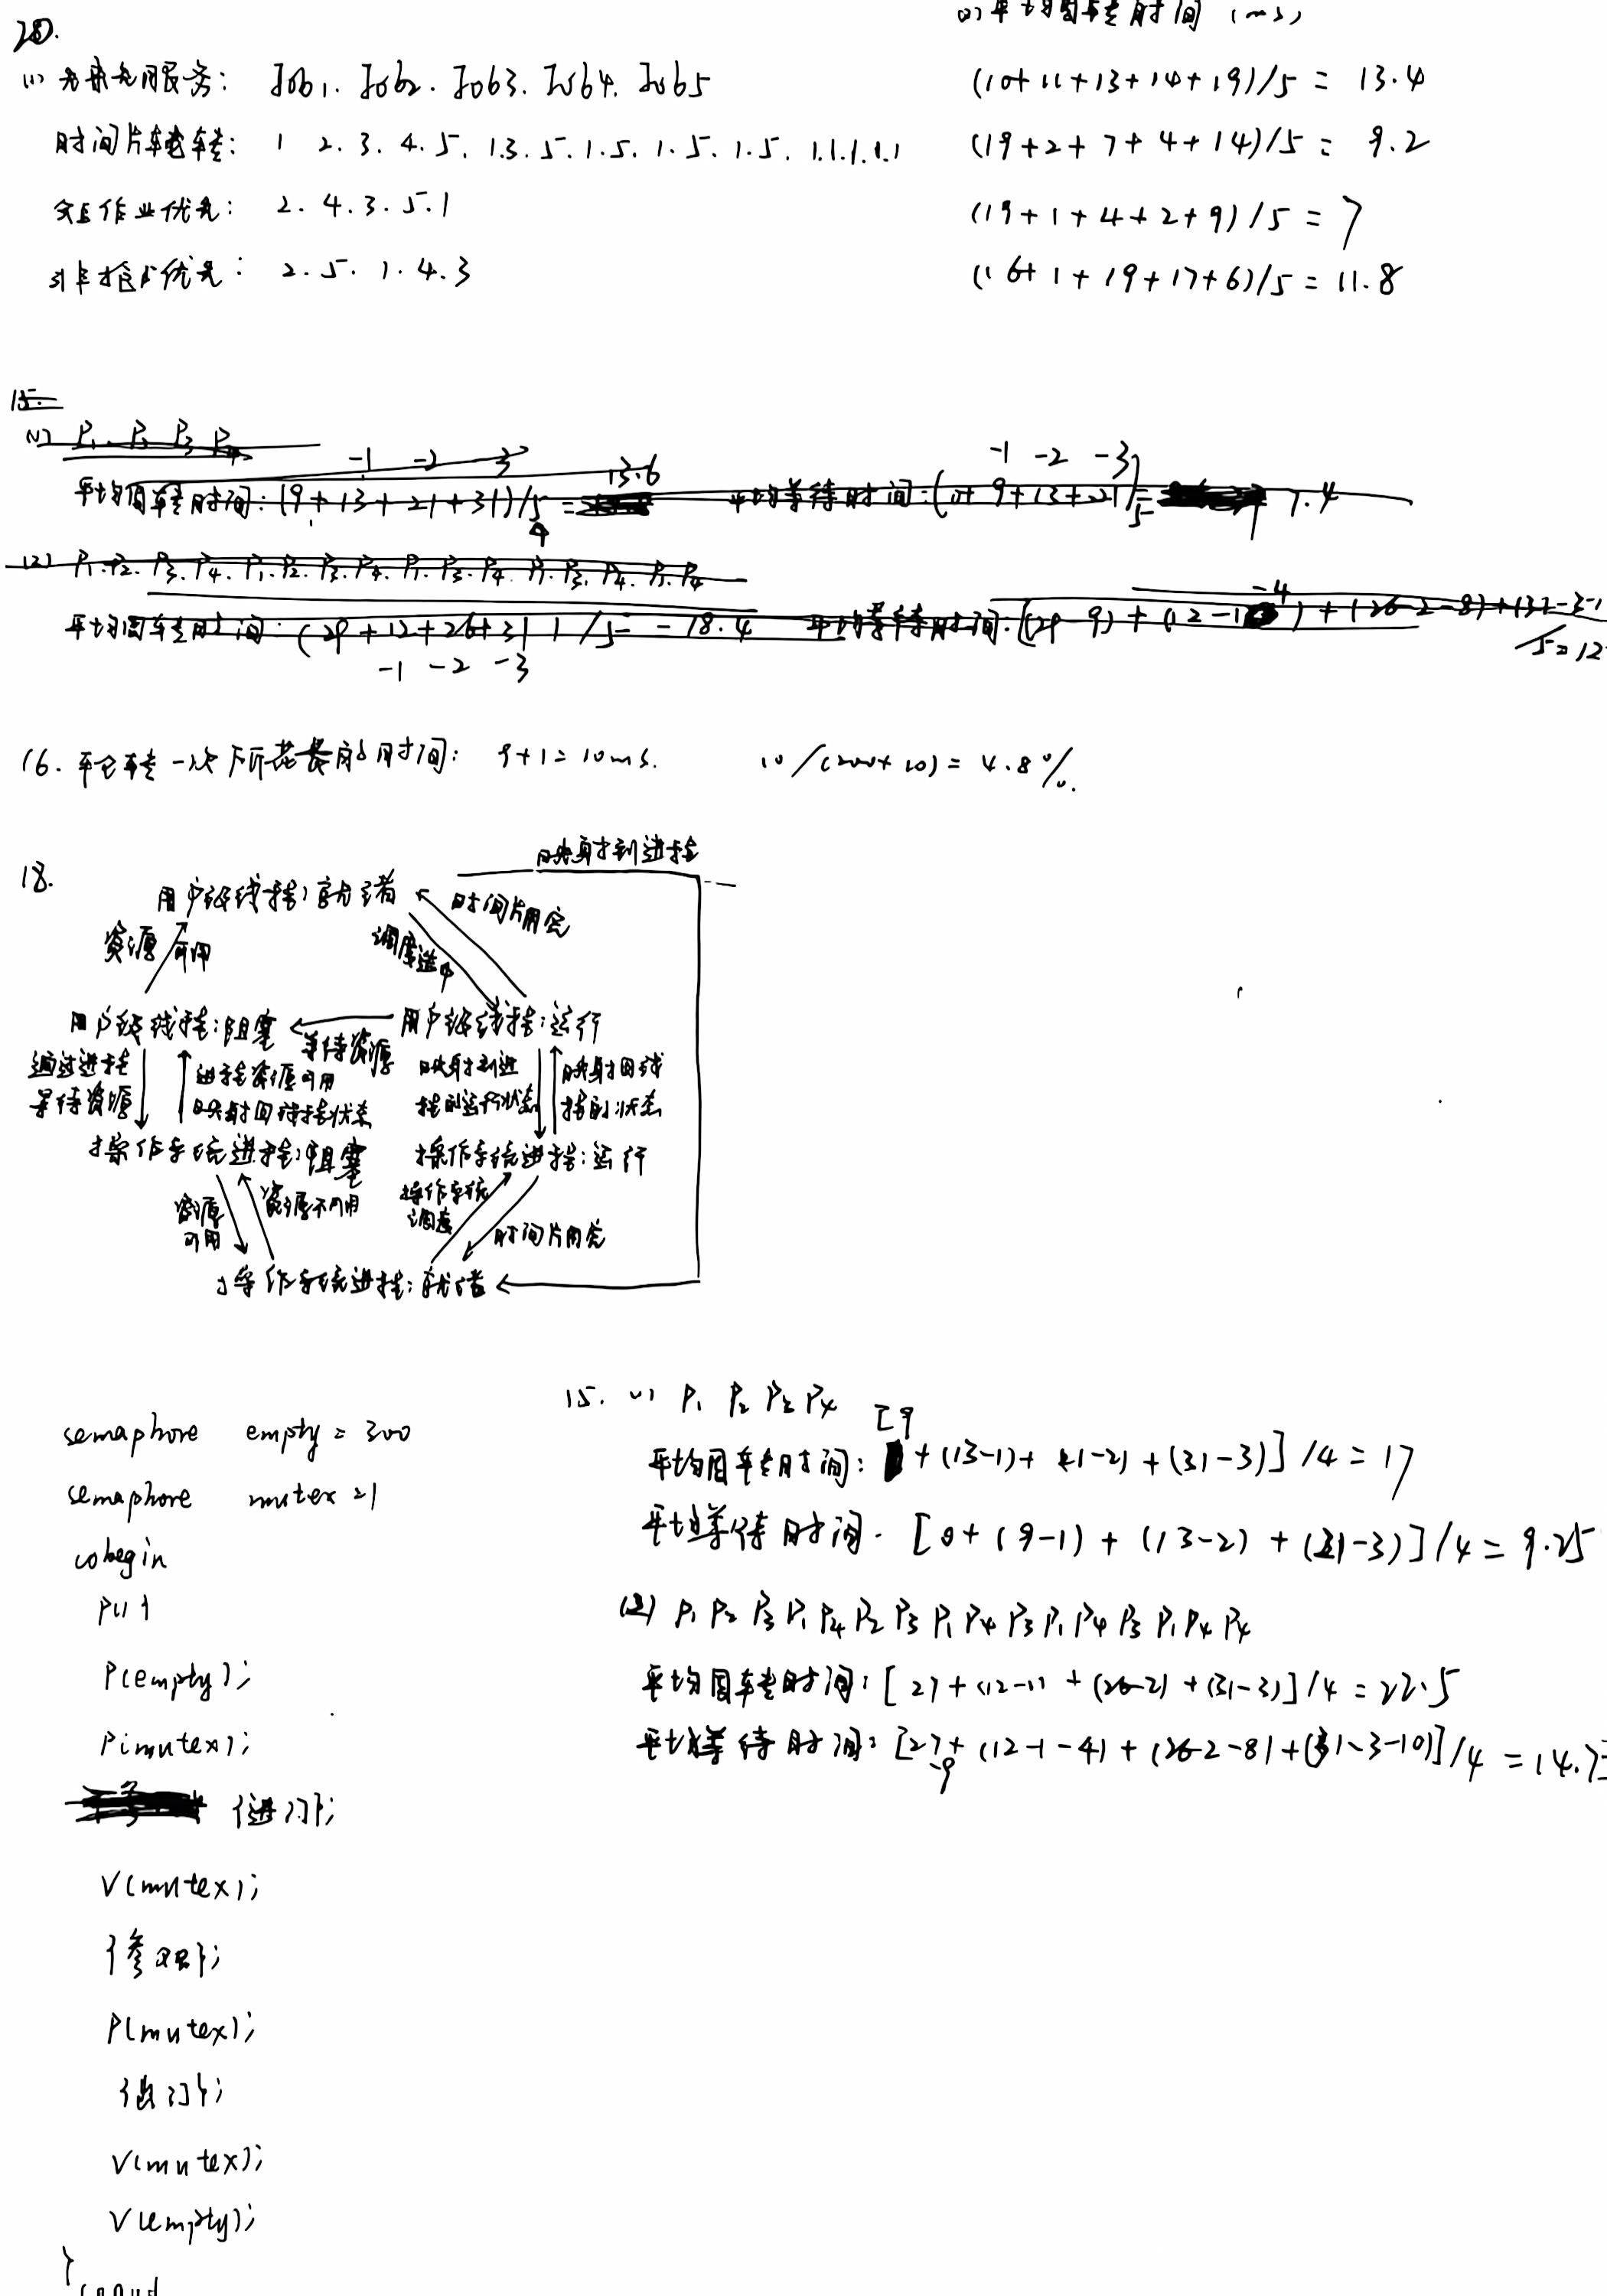 20.
(1) 先来先服务: Job1. Job2. Job3. Job4. Job5
时间片轮转: 1 2. 3. 4. 5. 1.3. 5. 1. 5. 1. 5. 1. 5. 1.1.1.1.1
短作业优先: 2. 4. 3. 5. 1
非抢占优先: 2. 5. 1. 4. 3
平均周转时间 (ms)
(10+11+13+14+19)/5 = 13.4
(19+2+7+4+14)/5 = 9.2
(19+1+4+2+9)/5 = 7
(16+1+19+17+6)/5 = 11.8
15.
(1) P1 P2 P3 P4
-1 -2 -3 13.6 -1 -2 -3
平均周转时间: (9+13+21+31)/5 = 平均等待时间: (0+9+13+21)/5 = 7.4
4
(2) P1. P2. P3. P4. P1. P2. P3. P4. P1. P3. P4. P1. P3. P4. P1. P4
-4
平均周转时间: (29+12+26+31)/5 = 18.4 平均等待时间: [(29-9)+(12-1)+(26-2-8)+(31-3-1
-1 -2 -3 /5=12
16. 轮转一次所花费的时间: 9+1=10ms. 10/(200+10)=4.8%.
18.
映射到进程
用户级线程: 就绪
时间片用完
资源可用
调度选中
用户级线程: 阻塞
等待资源
用户级线程: 运行
通过进程等待资源
进程资源可用
映射回线程状态
映射到进程的运行状态
映射回线程的状态
操作系统进程: 阻塞
操作系统进程: 运行
资源可用
资源不可用
操作系统调度
时间片用完
操作系统进程: 就绪
semaphore empty = 300
semaphore mutex = 1
cobegin
P(empty);
P(mutex);
{进门};
V(mutex);
{参观};
P(mutex);
{出门};
V(mutex);
V(empty);
}
coend
15. (1) P1 P2 P3 P4
平均周转时间: [9+(13-1)+(21-2)+(31-3)]/4=17
平均等待时间. [0+(9-1)+(13-2)+(21-3)]/4=9.25
(2) P1 P2 P3 P1 P4 P2 P3 P1 P4 P3 P1 P4 P3 P1 P4 P4
平均周转时间: [27+(12-1)+(26-2)+(31-3)]/4=22.5
平均等待时间: [27-9+(12-1-4)+(26-2-8)+(31-3-10)]/4=14.75